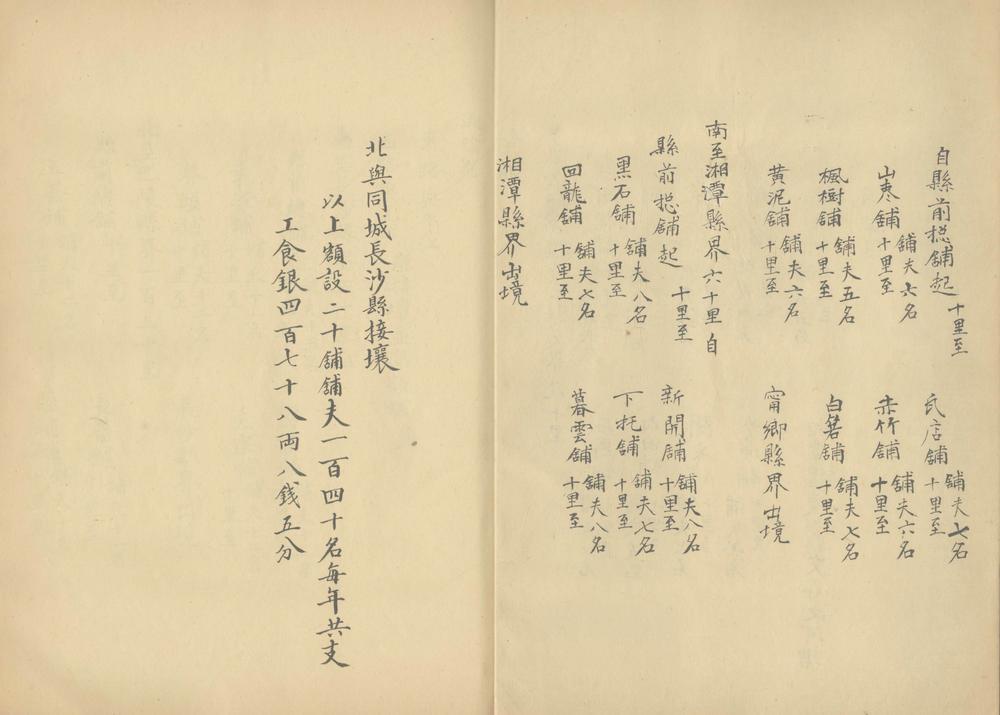 自縣前捴舖起 十里至 瓦店舖 舖夫七名 十里至
山枣舖 舖夫六名 十里至 赤竹舖 舖夫六名 十里至
楓樹舖 舖夫五名 十里至 白箬舖 舖夫七名 十里至
黄泥舖 舖夫六名 十里至 甯鄉縣界出境
南至湘潭縣界六十里自
縣前捴舖起 十里至 新開舖 舖夫八名 十里至
黑石舖 舖夫八名 十里至 下托舖 舖夫七名 十里至
回龍舖 舖夫七名 十里至 暮雲舖 舖夫八名 十里至
湘潭縣界出境
北與同城長沙縣接壤
以上額設二十舖舖夫一百四十名每年共支
工食銀四百七十八両八錢五分